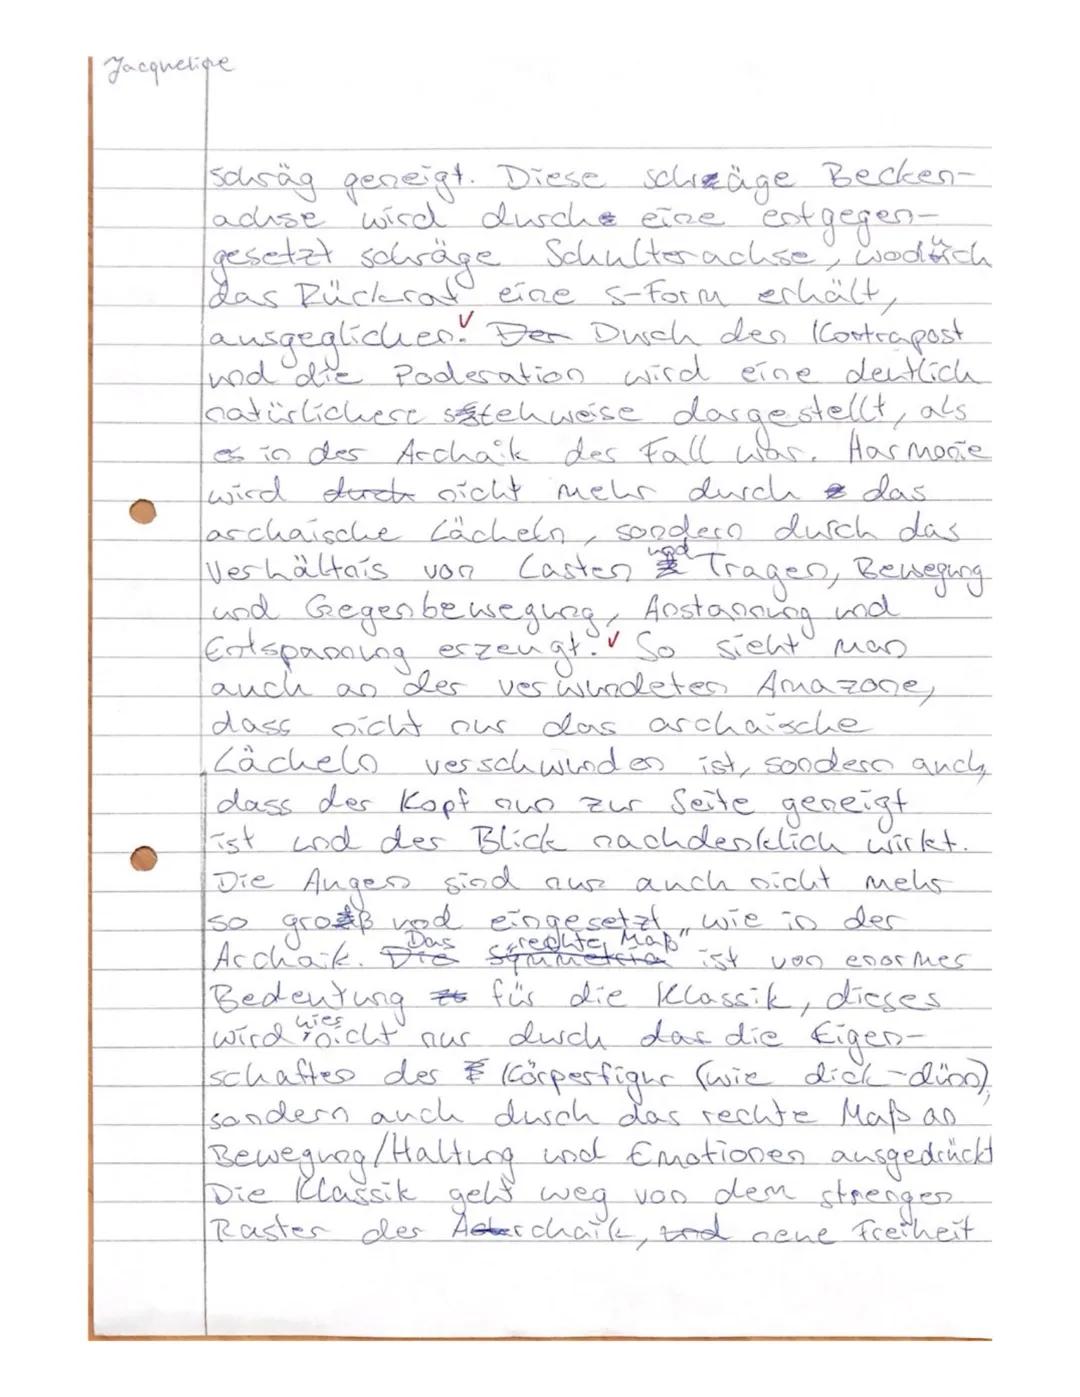 Jacqueline
schräg geneigt. Diese schräge Becken-
achse wird durch eine entgegen-
gesetzt schräge Schulterachse, wodurch
das Rückrat eine s-Form erhält,
ausgeglichen. Der Durch den Kontrapost
und die Poderation wird eine deutlich
natürlichere stehweise dargestellt, als
es in der Archaik der Fall war. Harmonie
wird durch nicht mehr durch das
archaische Lächeln, sondern durch das
Verhältnis von Lasten und Tragen, Bewegung
und Gegenbewegung, Anstannung und
Entspannung erzeugt. So sieht man
auch an der verwundeten Amazone,
dass nicht nur das archaische
Lächeln verschwunden ist, sondern auch,
dass der Kopf nun zur Seite geneigt
ist und der Blick nachdenklich wirkt.
Die Augen sind nun auch nicht mehr
so groß und eingesetzt wie in der
Archaik. Die Symmetria Das „rechte Maß" ist von enormer
Bedeutung für die Klassik, dieses
wird hier nicht nur durch das die Eigen-
schaften der Körperfigur (wie dick-dünn),
sondern auch durch das rechte Maß an
Bewegung/Haltung und Emotionen ausgedrückt
Die Klassik geht weg von dem strengen
Raster der Archaik, und neue Freiheit